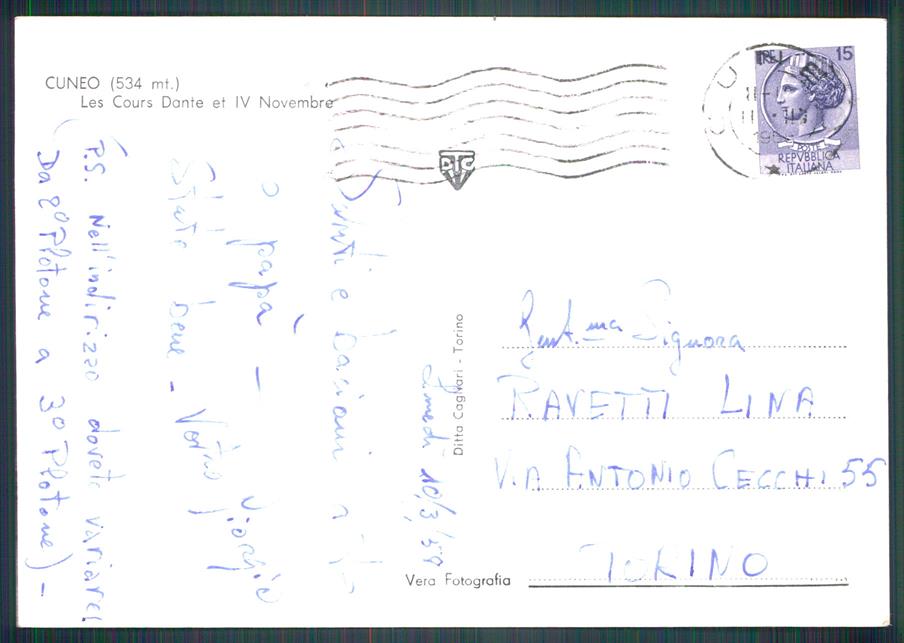 CUNEO (534 mt.)
Les Cours Dante et IV Novembre
LIRE 15
POSTE
REPVBBLICA
ITALIANA
PTC
10/3/59
Saluti e bacioni a te
o papà —
State bene — Vostro Giorgio
P.S. Nell'indirizzo dovete variare
(Da 2° Plotone a 3° Plotone) —
Ditta Cagliari - Torino
Vera Fotografia
Gent.ma Signora
RAVETTI LINA
VIA ANTONIO CECCHI 55
TORINO